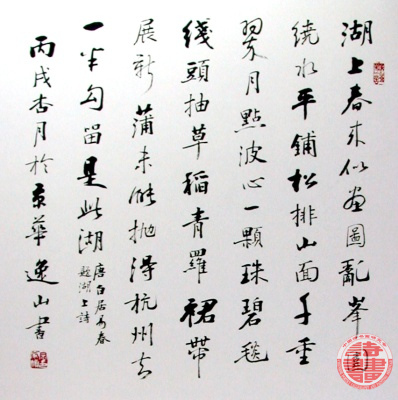 湖上春来似畫圖亂峯圍
繞水平鋪松排山面千重
翠月點波心一顆珠碧毯
綫頭抽草稻青羅裙帶
展新蒲未能抛得杭州去
一半勾留是此湖
唐白居易春
題湖上詩
丙戌杏月於京華逸山書